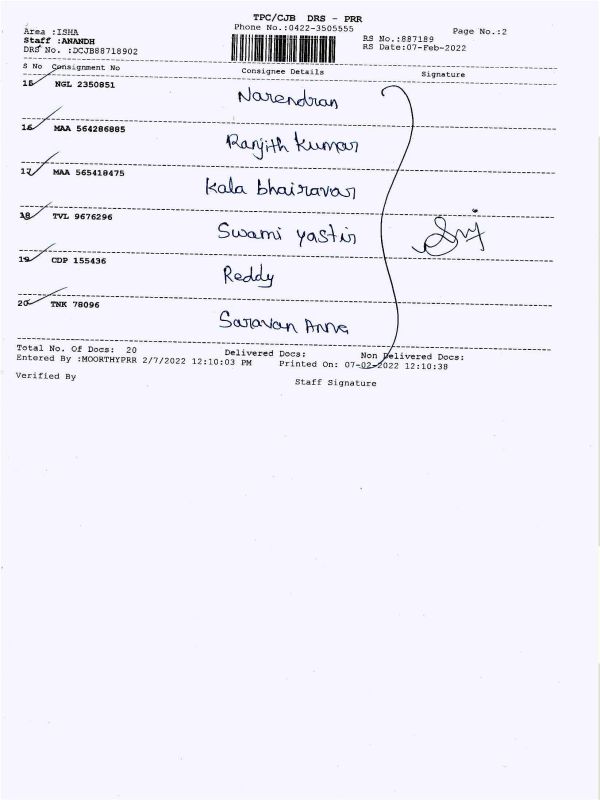 TPC/CJB DRS - PRR
Phone No.:0422-3505555
Page No.:2
Area :ISHA
RS No.:887189
Staff :ANANDH
RS Date:07-Feb-2022
DRS No. :DCJB88718902
S No Consignment No Consignee Details Signature
15 NGL 2350851 Narendran
16 MAA 564286885 Ranjith Kumar
17 MAA 565418475 Kala bhairavar
18 TVL 9676296 Swami yastir
19 CDP 155436 Reddy
20 TNK 78096 Saravan Anna
Total No. Of Docs: 20 Delivered Docs: Non Delivered Docs:
Entered By :MOORTHYPRR 2/7/2022 12:10:03 PM Printed On: 07-02-2022 12:10:38
Verified By Staff Signature